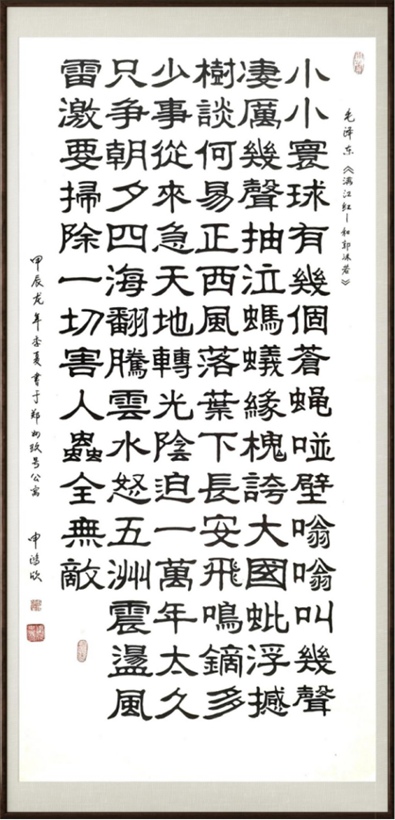 毛泽东《满江红—和郭沫若》
小小寰球有幾個蒼蝇碰壁嗡嗡叫幾聲
凄厲幾聲抽泣螞蟻緣槐誇大國蚍浮撼
樹談何易正西風落葉下長安飛鳴鏑多
少事從來急天地轉光陰迫一萬年太久
只争朝夕四海翻騰雲水怒五洲震盪風
雷激要掃除一切害人蟲全無敵
甲辰龙年季夏書于郑州玖号公寓
申鴻欣